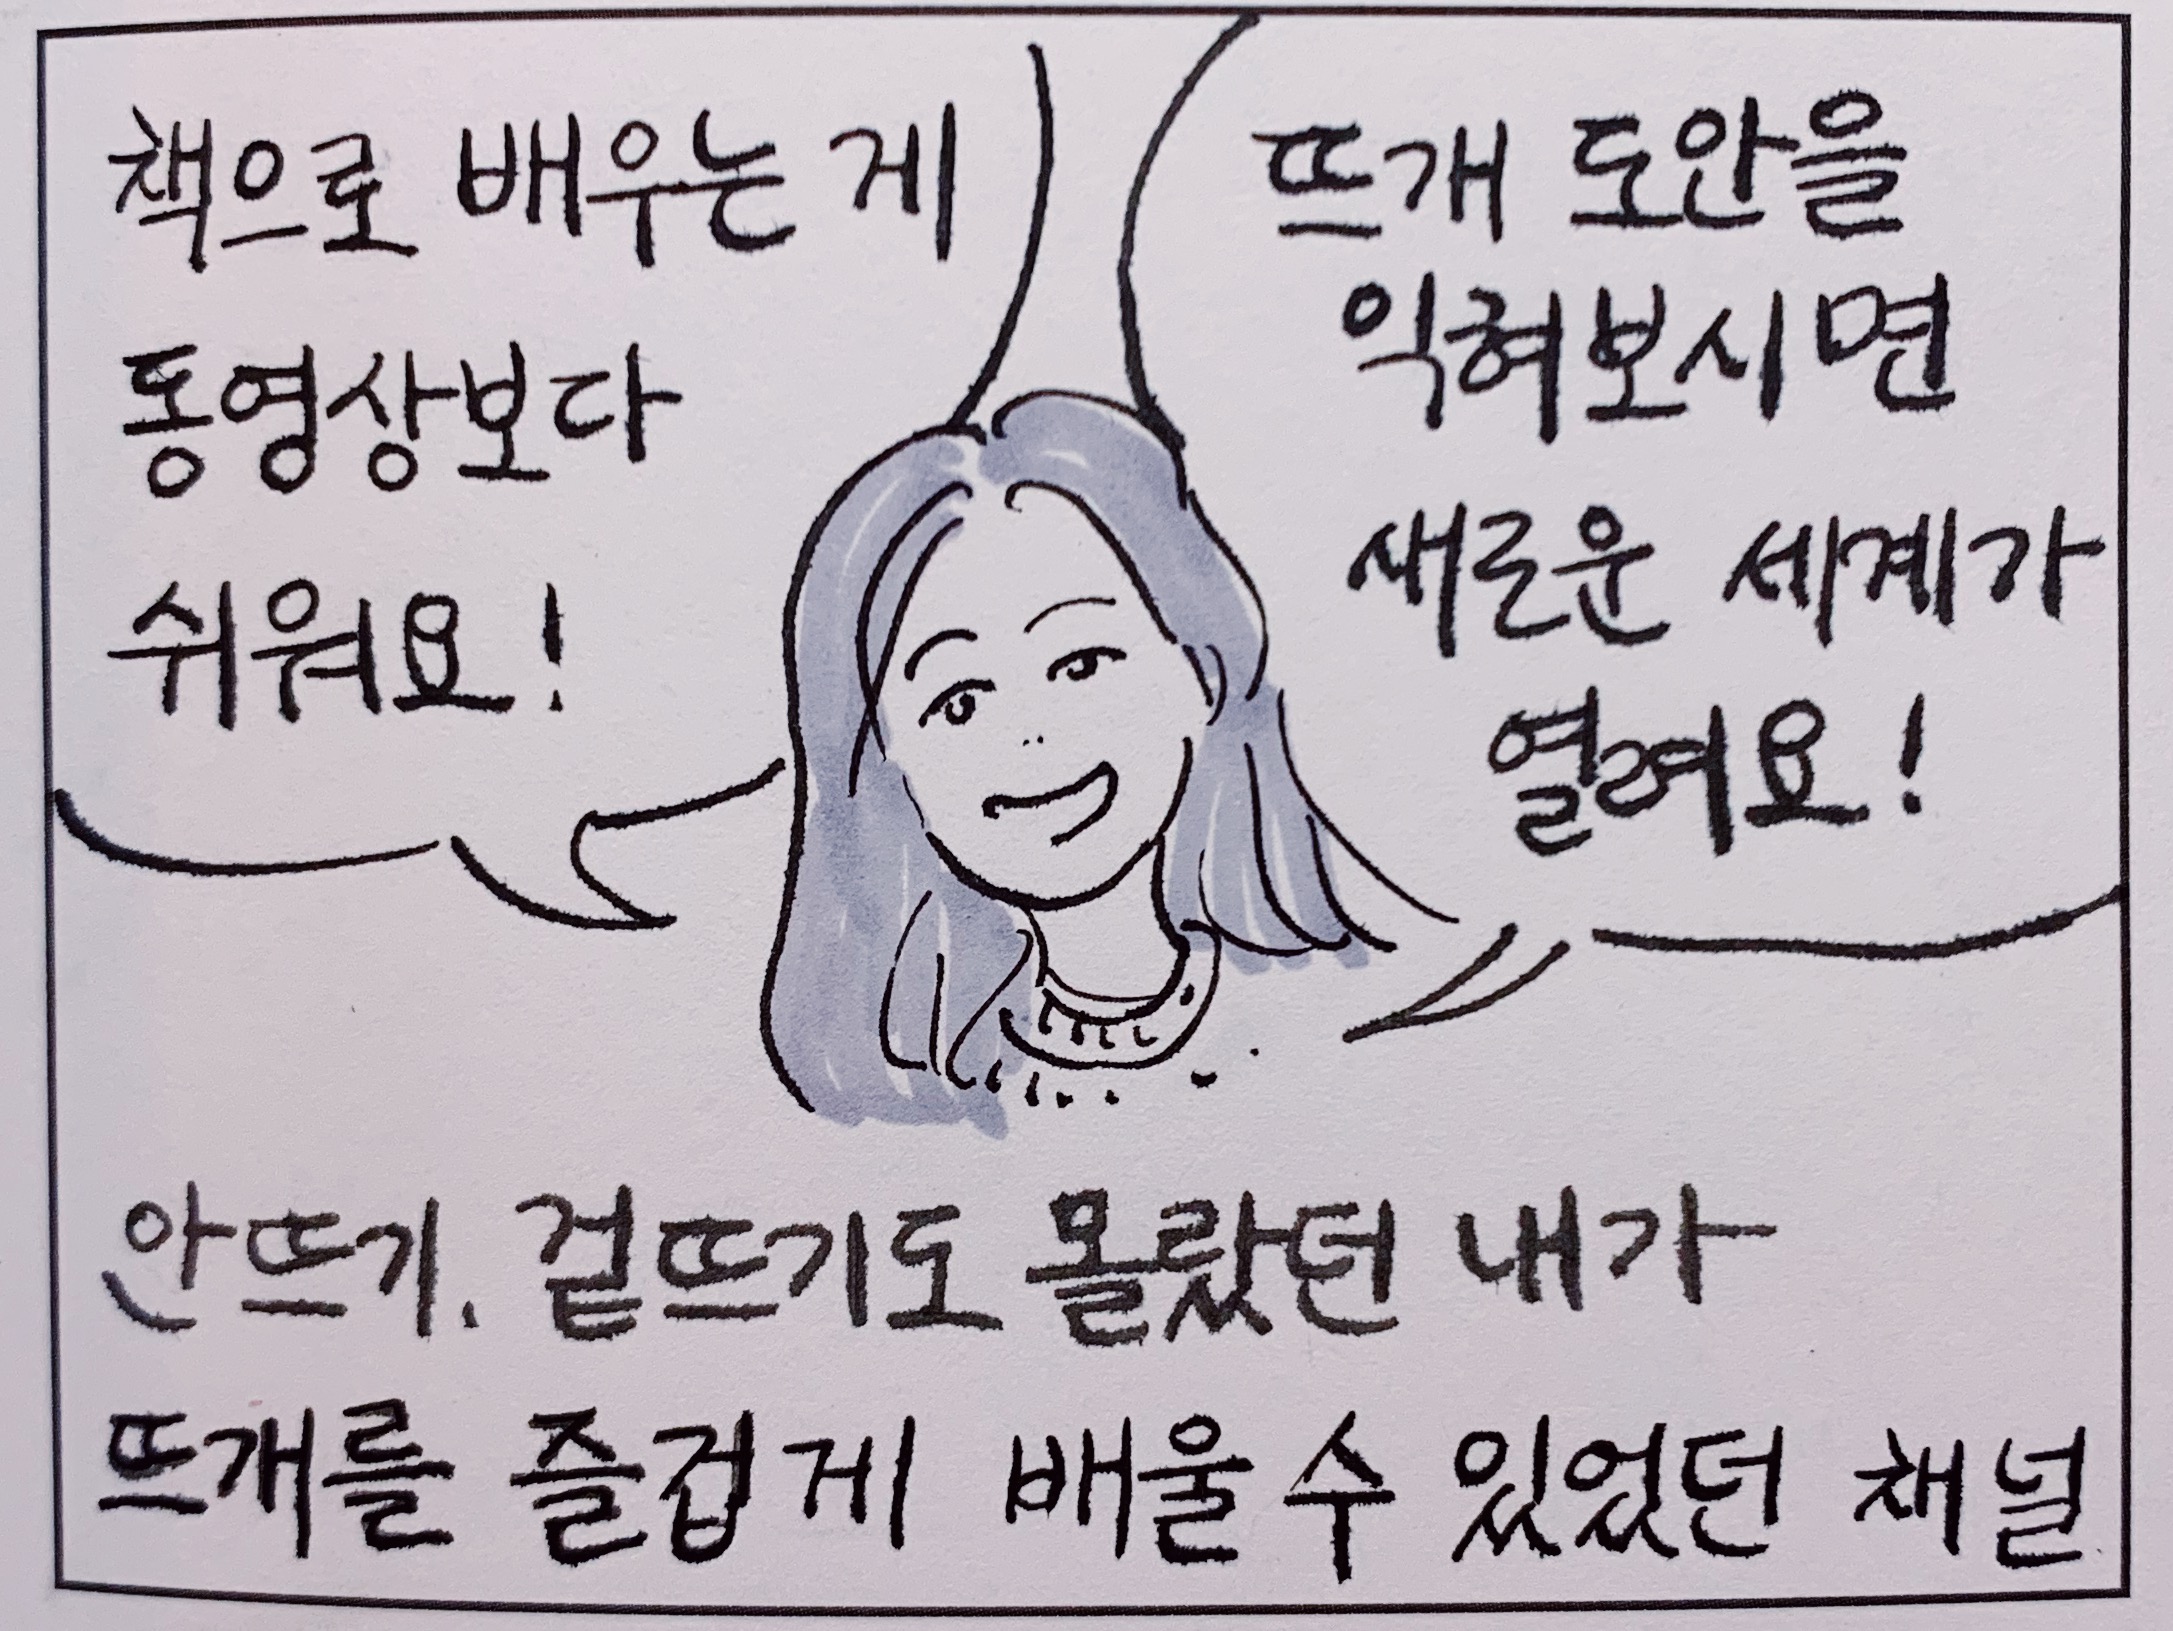 책으로 배우는 게
동영상보다
쉬워요!
뜨개 도안을
익혀보시면
새로운 세계가
열려요!
안뜨기. 겉뜨기도 몰랐던 내가
뜨개를 즐겁게 배울 수 있었던 채널